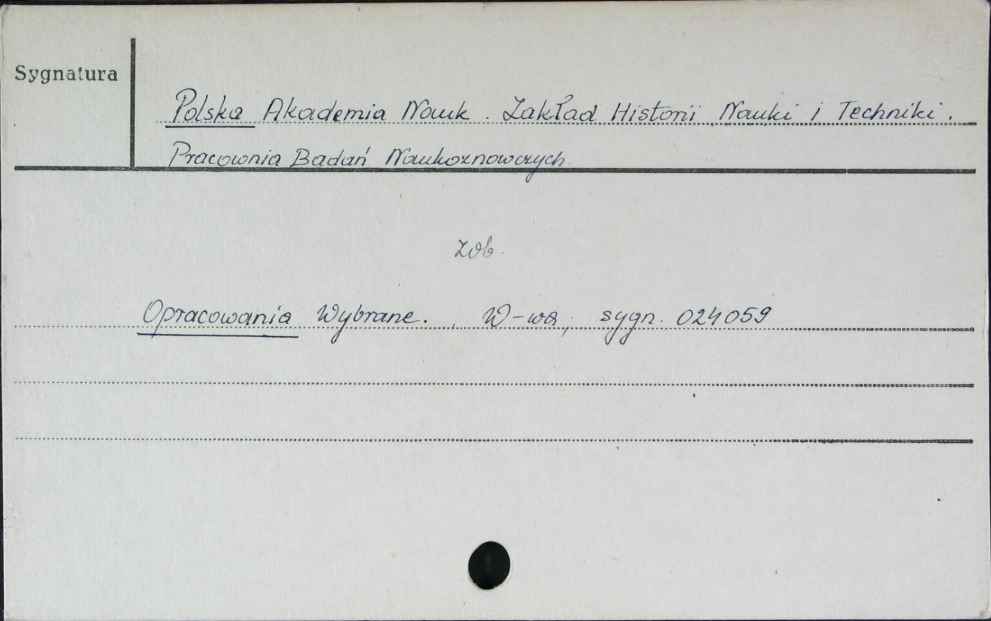 Sygnatura
Polska Akademia Nauk. Zakład Historii Nauki i Techniki.
Pracownia Badań Naukoznawczych.
zob.
Opracowania Wybrane. , W-wa, sygn. 024059